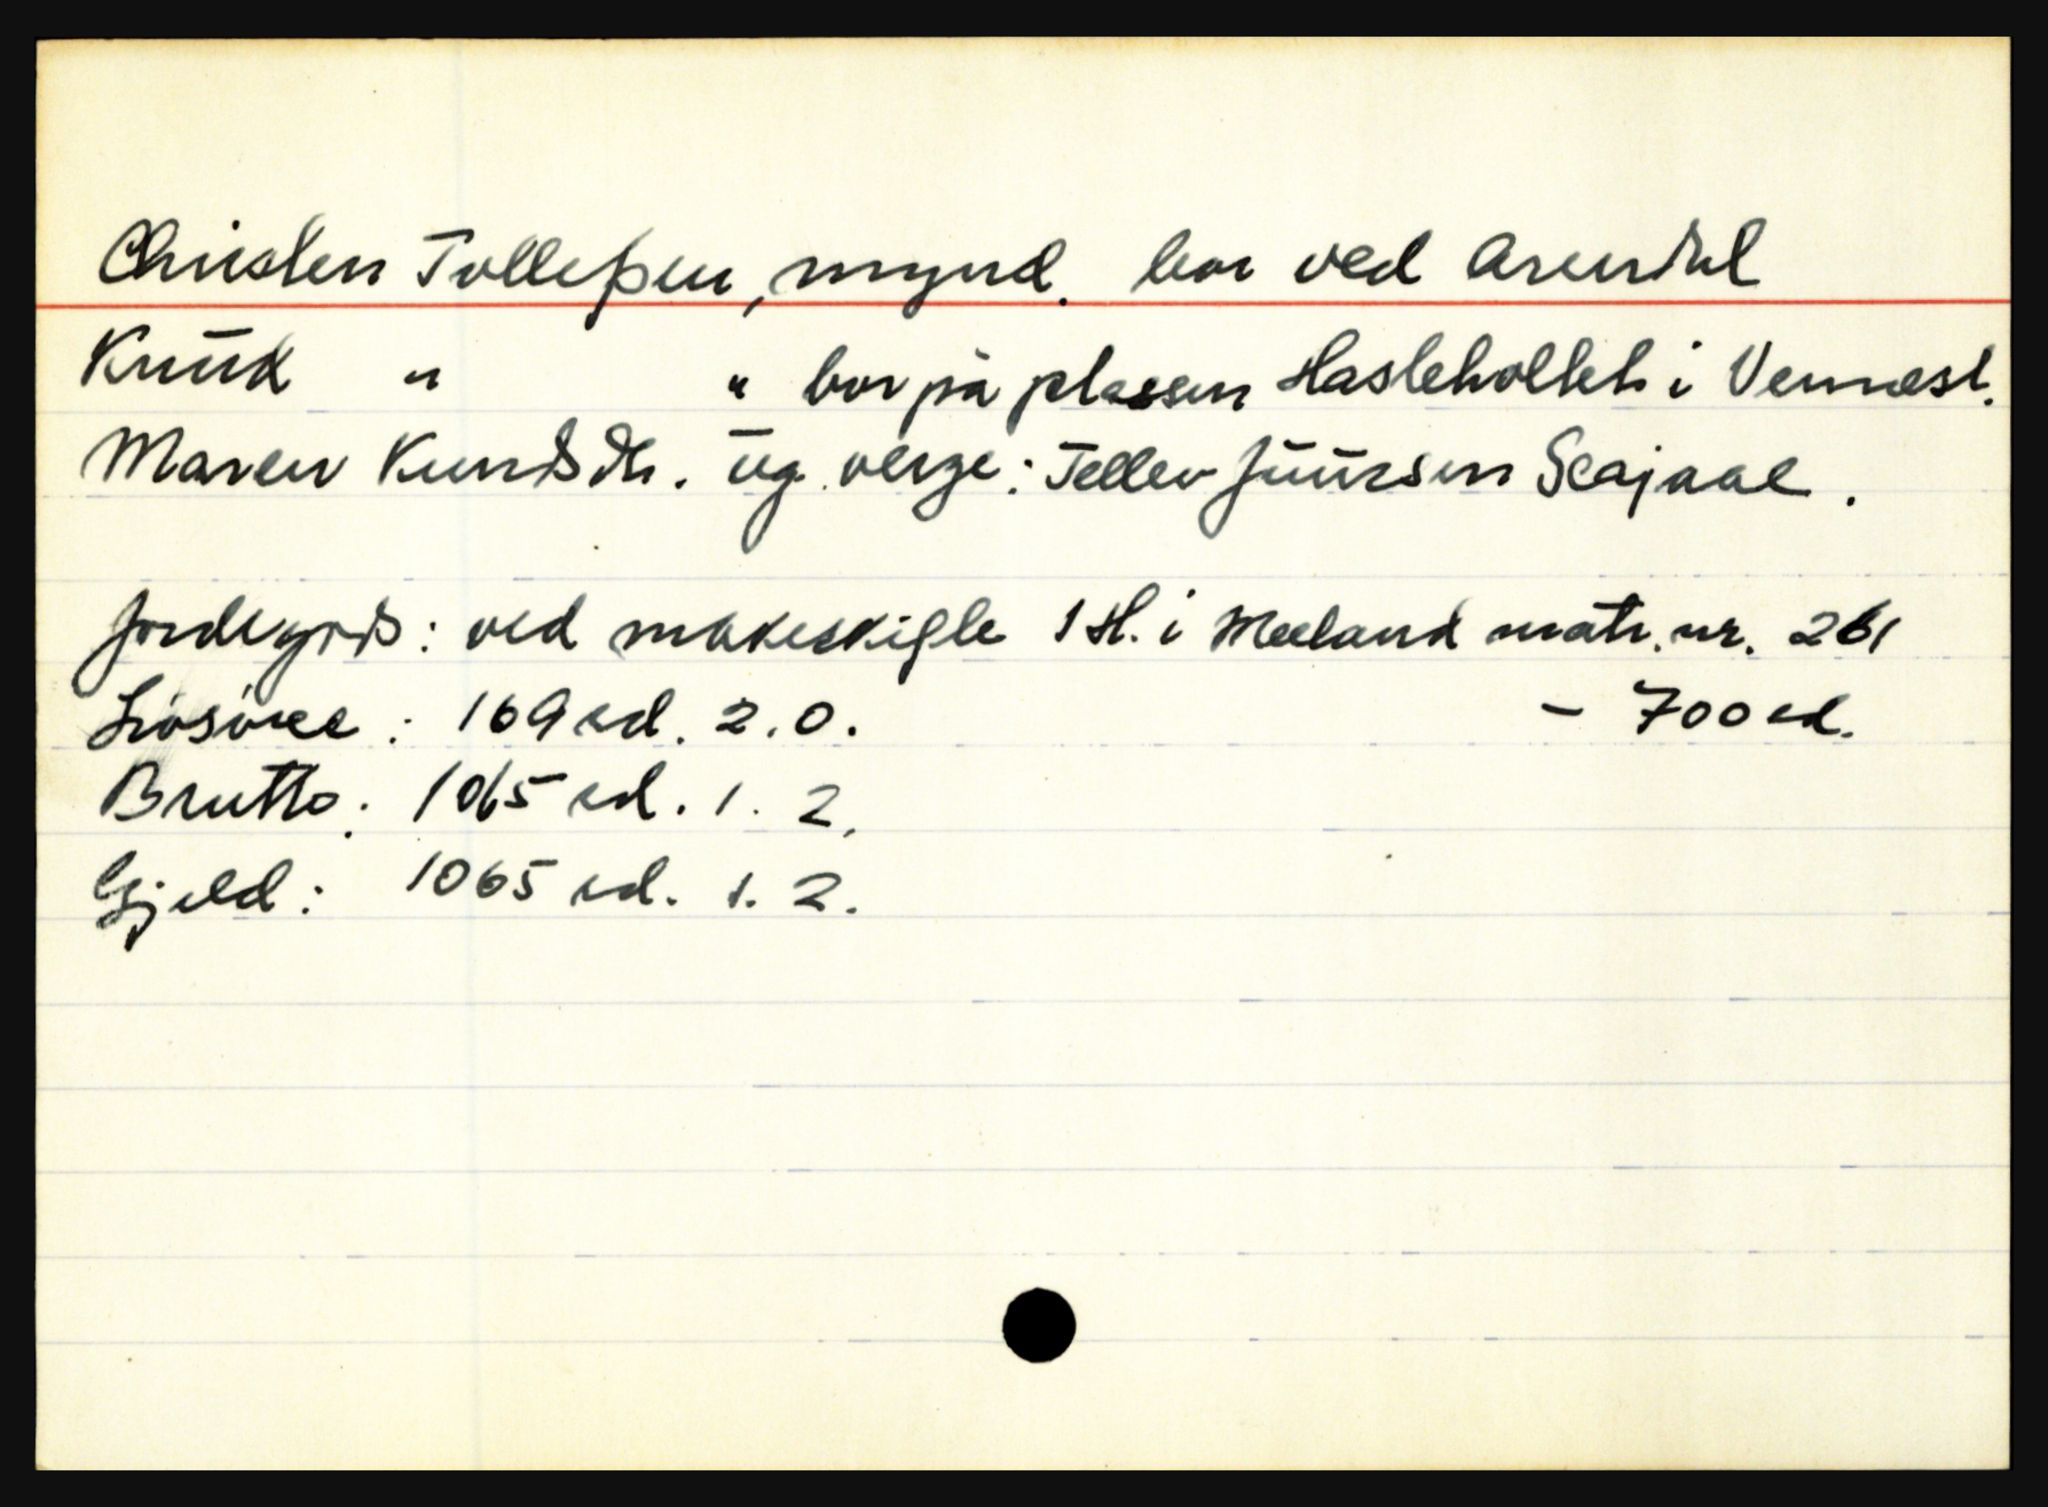 Christen Tolleßen, mynd. bor ved Arendal
Knud " " bor på plassen Hasleholtet i Vennesl.
Maren Knudsdtr. ug. verge: Tellev Juursen Scajaae.
Jordegods: ved makeskifte 1 H. i Meeland matr. nr. 261
Lösöree: 169 rd. 2. 0. - 700 rd.
Brutto: 1065 rd. 1. 2.
Gjeld: 1065 rd. 1. 2.